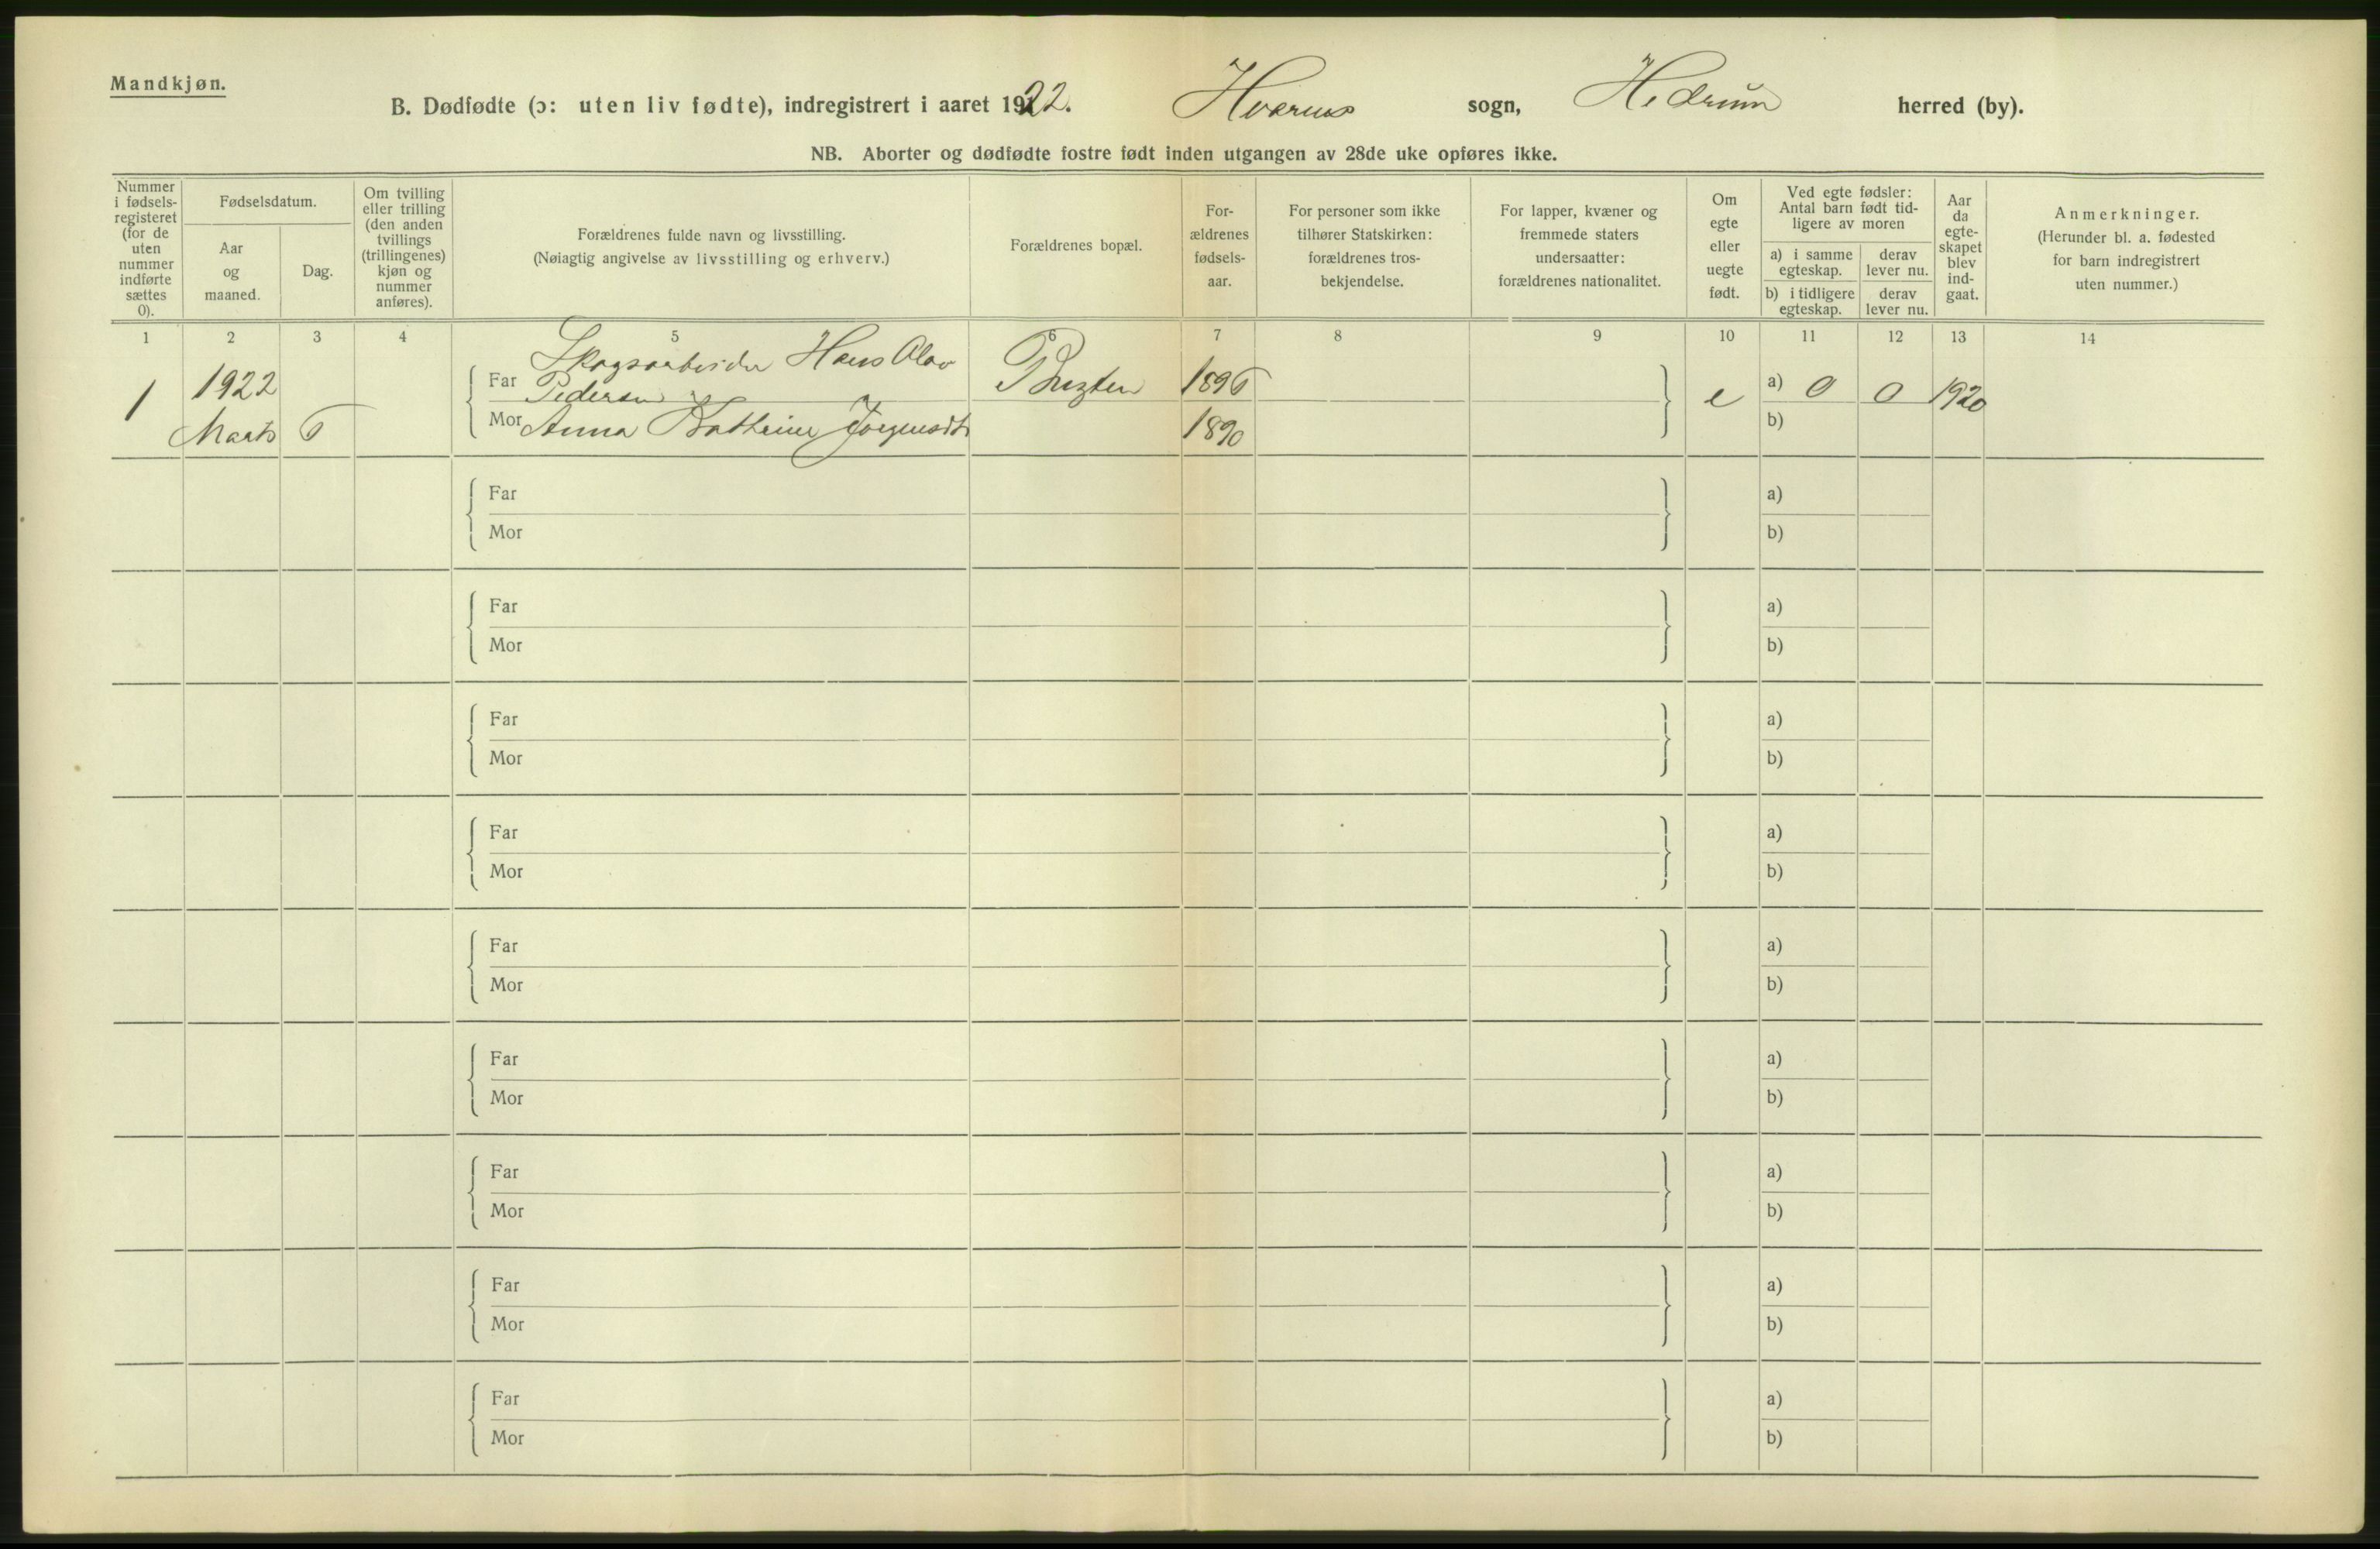 Mandkjøn.
B. Dødfødte (ɔ: uten liv fødte), indregistrert i aaret 1922. Hvarnes sogn, Hedrum herred (by).
NB. Aborter og dødfødte fostre født inden utgangen av 28de uke opføres ikke.
Nummer
i fødsels-
registeret
(for de
uten
nummer
indførte
sættes
0).
Fødselsdatum.
Aar
og
maaned.
Dag.
Om tvilling
eller trilling
(den anden
tvillings
(trillingenes)
kjøn og
nummer
anføres).
Forældrenes fulde navn og livsstilling.
(Nøiagtig angivelse av livsstilling og erhverv.)
Forældrenes bopæl.
For-
ældrenes
fødsels-
aar.
For personer som ikke
tilhører Statskirken:
forældrenes tros-
bekjendelse.
For lapper, kvæner og
fremmede staters
undersaatter:
forældrenes nationalitet.
Om
egte
eller
uegte
født.
Ved egte fødsler:
Antal barn født tid-
ligere av moren
a) i samme
egteskap.
derav
lever nu.
b) i tidligere
egteskap.
derav
lever nu.
Aar
da
egte-
skapet
blev
ind-
gaat.
Anmerkninger.
(Herunder bl. a. fødested
for barn indregistrert
uten nummer.)
1 2 3 4 5 6 7 8 9 10 11 12 13 14
1
1922
Marts 6
Skogsarbeider Hans Olav
Far Pedersen
1896
e
a) 0 0 1920
Mor Anna Kathrine Jørgensdtr
1890
b)
Far a)
Mor b)
Far a)
Mor b)
Far a)
Mor b)
Far a)
Mor b)
Far a)
Mor b)
Far a)
Mor b)
Far a)
Mor b)
Far a)
Mor b)
Far a)
Mor b)